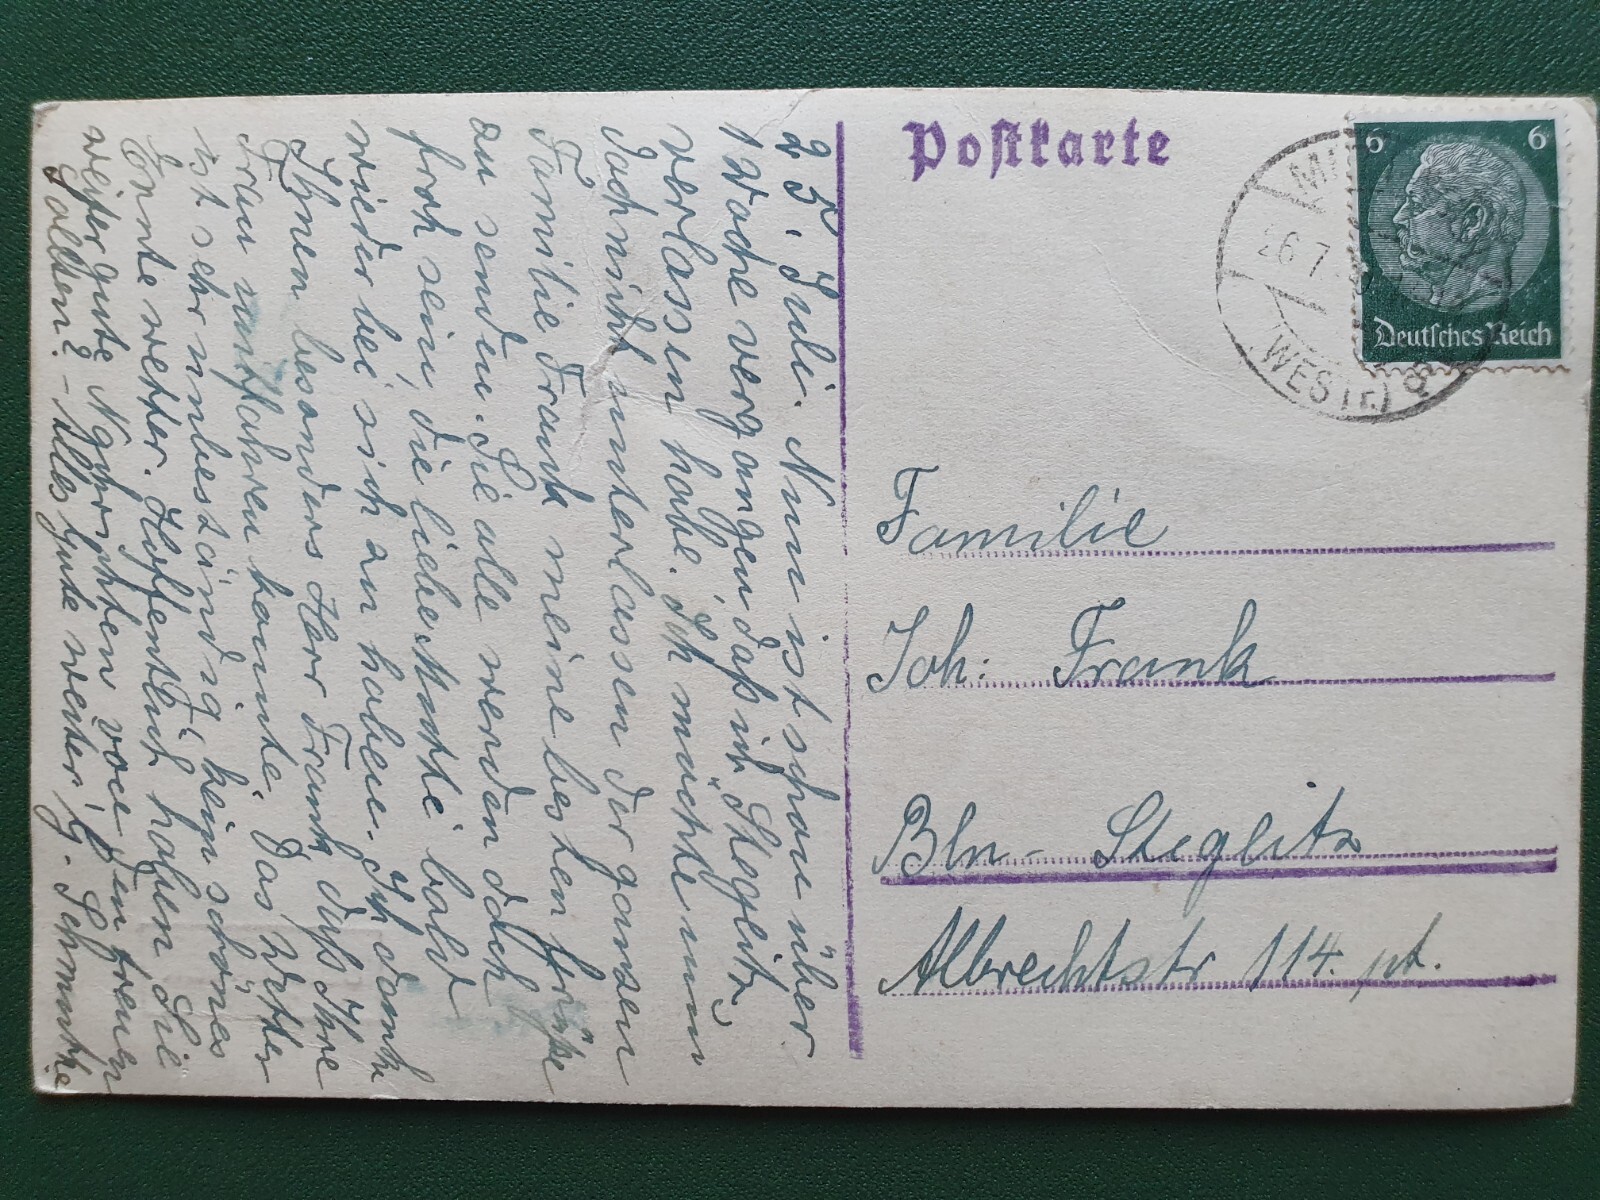 Postkarte
6 6
Deutsches Reich
26.7.
(WESTF.)
Familie
Joh. Frank
Bln- Steglitz
Albrechtstr 114. pt.
25. Juli. Nun ist schon über
1 Woche vergangen, daß ich Steglitz
verlassen habe. Ich möchte nun
doch nicht unterlassen der ganzen
Familie Frank meine besten Grüße
zu senden. Sie alle werden doch
froh sein, die liebe Mutti bald
wieder bei sich zu haben. Ich dank
Ihnen besonders Herr Frank, daß Ihre
Frau mitfahren konnte. Das Wetter
ist sehr unbeständig, kein schönes
Erntewetter. Hoffentlich haben Sie
weiter gute Nachrichten von den treuen
Alles Gute weiter,